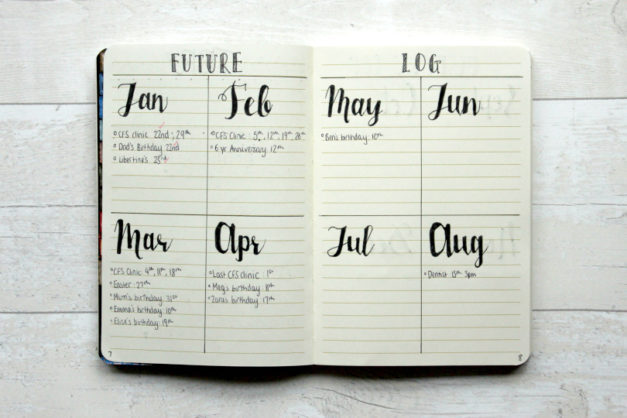 FUTURE LOG
Jan
CFS clinic 22nd, 29th
Dad's Birthday 22nd
Libertines
Feb
CFS Clinic 5th, 12th, 19th, 26th
6 yr Anniversary 12th
Mar
CFS Clinic 4th, 11th, 18th
Easter 27th
Mum's birthday 31st
Emma's birthday 10th
Elise's birthday 19th
Apr
Last CFS clinic 1st
Meg's birthday 8th
Zara's birthday 17th
May
Ben's birthday 10th
Jun
Jul
Aug
Dentist 15th 3pm
7
8